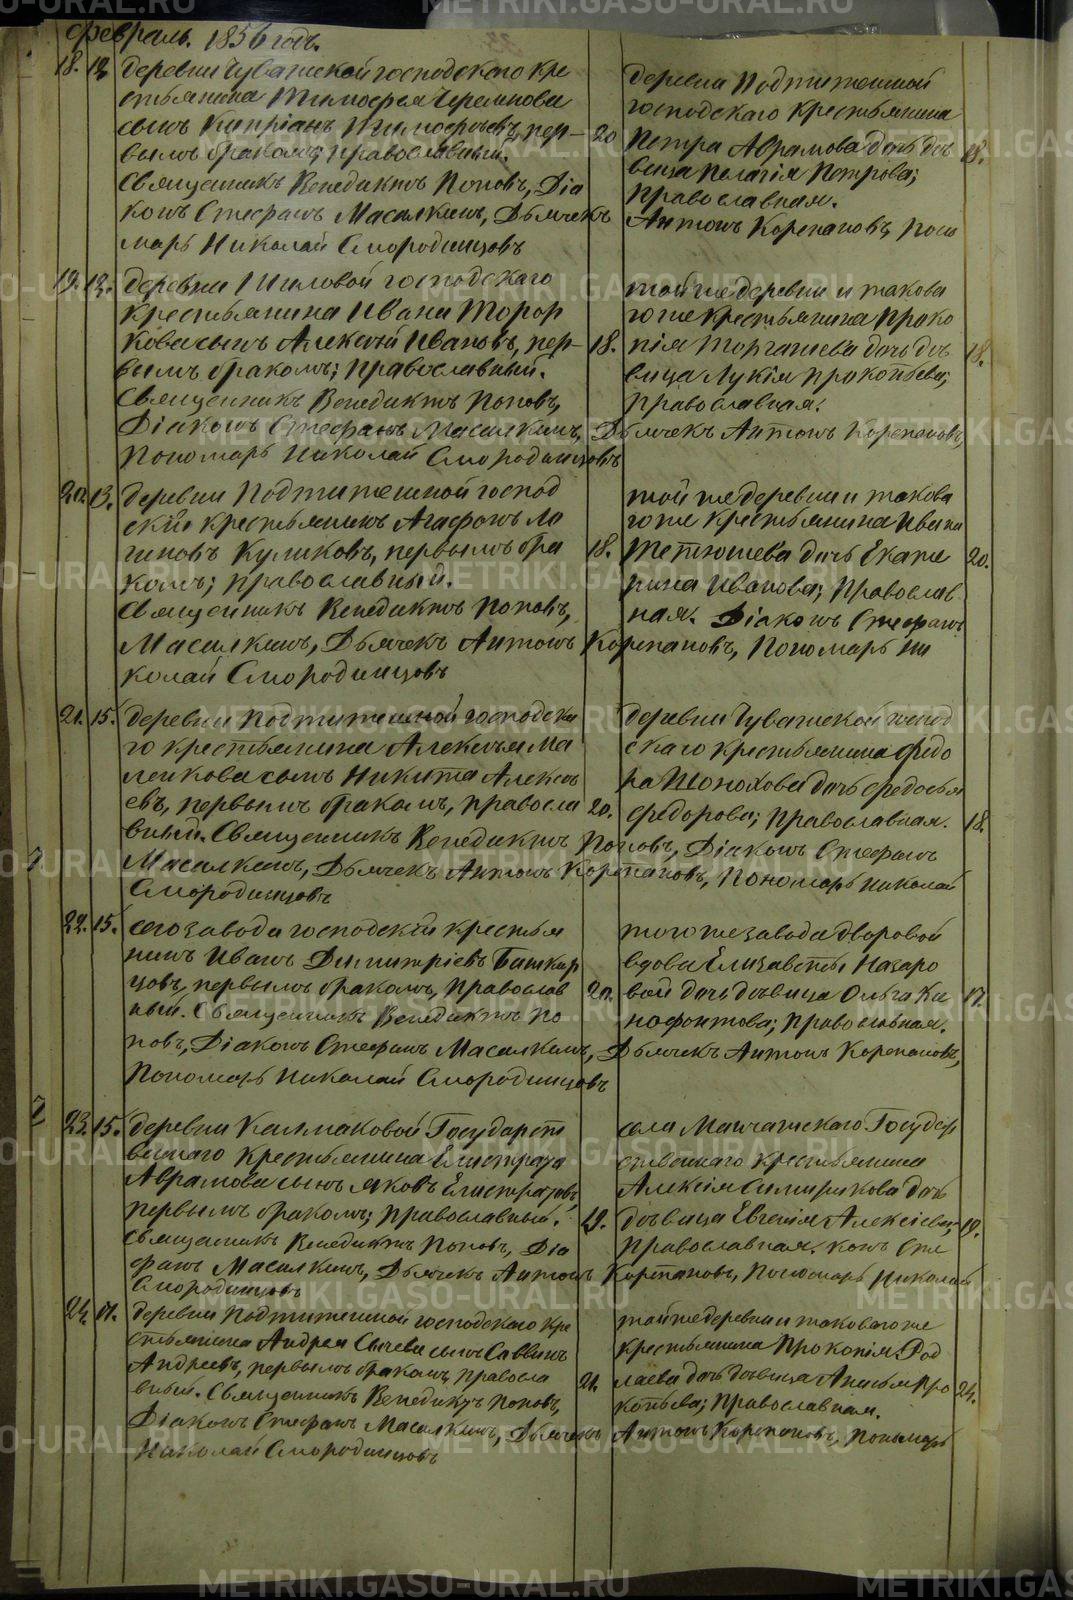 Февраль. 1856 годъ.
18. 12. деревни Чувашской господскаго кре
стьянина Тимофея Черемнова
сынъ Кипріанъ Тимофеевъ, пер-
вымъ бракомъ; православный.
20
Священникъ Венедиктъ Поповъ, Діа
конъ Стефанъ Масалкинъ, Дьячекъ
марь Николай Смородинцовъ
деревни Подтишенной
господскаго крестьянина
Петра Абрамова дочь дѣ
вица Пелагія Петрова;
18.
Православная.
Антонъ Корепановъ, Поно
19. 12. деревни Шиловой господскаго
крестьянина Ивана
сынъ Алексѣй Ивановъ, пер-
18.
вымъ бракомъ; Православный.
Священникъ Венедиктъ Поповъ,
Діаконъ Стефанъ Масалкинъ, Дьячекъ Антонъ Корепановъ,
Пономарь Николай Смородинцовъ
той же деревни и такова
го же крестьянина Проко
пія Торгашева дочь дѣ
18.
вица Лукія Прокопьева;
Православная.
20. 13. деревни Подтишенной господ
скій крестьянинъ Агафонъ Ло
гиновъ Куликовъ, первымъ бра
18.
комъ; православный.
Священникъ Венедиктъ Поповъ,
Масалкинъ, Дьячекъ Антонъ Корепановъ, Пономарь Ни
колай Смородинцовъ
той же деревни и такова
го же крестьянина Ивана
Тетюшева дочь Екате
20.
рина Иванова; Православ
ная. Діаконъ Стефанъ
21. 15. деревни Подтишенной господска
го крестьянина Алексѣя Ма
леикова сынъ Никита Алексѣ
евъ, первымъ бракомъ, правосла
20.
вный. Священникъ Венедиктъ Поповъ, Діаконъ Стефанъ
Масалкинъ, Дьячекъ Антонъ Корепановъ, Пономарь Николай
Смородинцовъ
деревни Чувашской господ
скаго крестьянина Федо
ра Шонохова дочь Федосья
Федорова; Православная.
18.
22. 15. сего завода господскій крестья
нинъ Иванъ Димитріевъ Башкир
цовъ, первымъ бракомъ, Православ
20.
ный. Священникъ Венедиктъ По
повъ, Діаконъ Стефанъ Масалкинъ, Дьячекъ Антонъ Корепановъ,
Пономарь Николай Смородинцовъ
того же завода дворовой
вдовы Елизаветы Назаро
вой дочь дѣвица Ольга Ки
17.
нофонтова; Православная.
23. 15. деревни Калмаковой Государст
веннаго крестьянина Елистрата
Аврамова сынъ Яковъ Елистратовъ,
первымъ бракомъ; православный.
19.
Священникъ Венедиктъ Поповъ, Діа
фанъ Масалкинъ, Дьячекъ Антонъ Корепановъ, Пономарь Николай
Смородинцовъ
села Манчажскаго Государ
ственнаго крестьянина
Алексія дочь
дѣвица Евгенія Алексіева,
19.
Православная. конъ Сте
24. 17. деревни Подтишенной господскаго кре
стьянина Андрея Сычева сынъ Саввинъ
Андреевъ, первымъ бракомъ, правосла
21.
вный. Священникъ Венедиктъ Поповъ,
Діаконъ Стефанъ Масалкинъ, Дьячекъ Антонъ Корепановъ, Пономарь
Николай Смородинцовъ
той же деревни и таковаго же
крестьянина Прокопія Род
лаева дочь дѣвица Анисья Про
24.
копьева; Православная.
METRIKI.GASO-URAL.RU